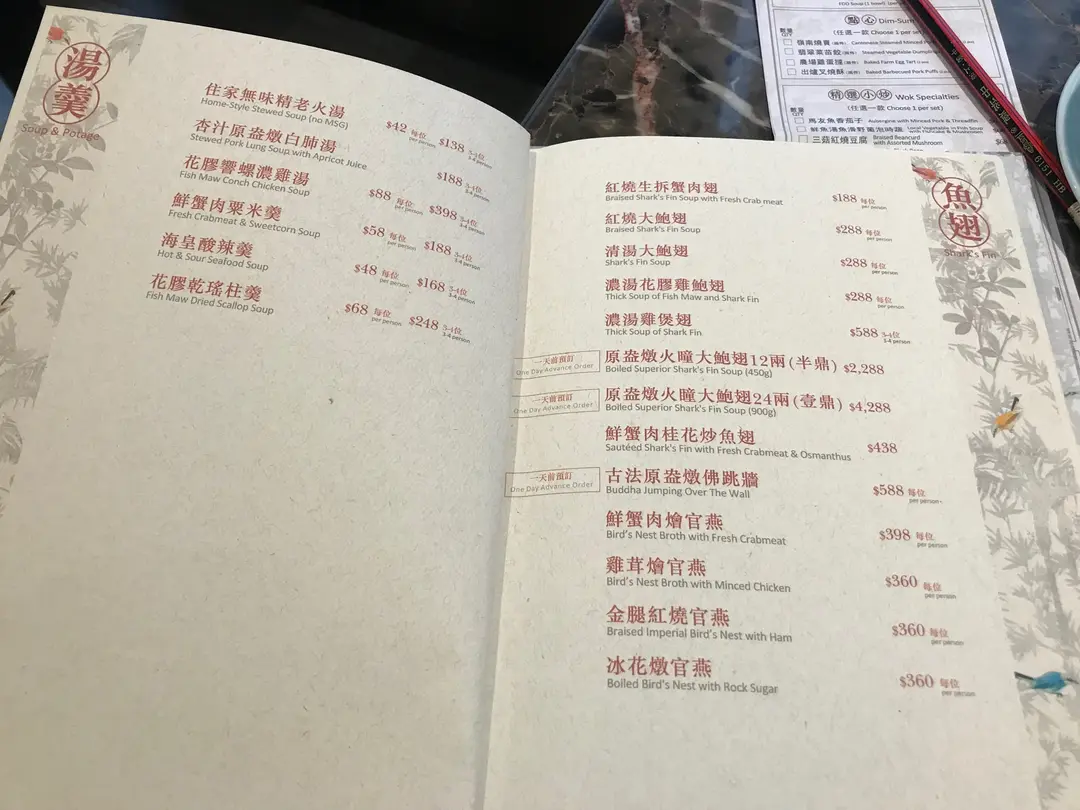 湯羹
Soup & Potage
住家無味精老火湯
Home-Style Stewed Soup (no MSG)
$42 每位 per person $138 3-4位 3-4 person
杏汁原盅燉白肺湯
Stewed Pork Lung Soup with Apricot Juice
$188 3-4位 3-4 person
花膠響螺濃雞湯
Fish Maw Conch Chicken Soup
$88 每位 per person $398 3-4位 3-4 person
鮮蟹肉粟米羹
Fresh Crabmeat & Sweetcorn Soup
$58 每位 per person $188 3-4位 3-4 person
海皇酸辣羹
Hot & Sour Seafood Soup
$48 每位 per person $168 3-4位 3-4 person
花膠乾瑤柱羹
Fish Maw Dried Scallop Soup
$68 每位 per person $248 3-4位 3-4 person
魚翅
Shark's Fin
紅燒生拆蟹肉翅
Braised Shark's Fin Soup with Fresh Crab meat
$188 每位 per person
紅燒大鮑翅
Braised Shark's Fin Soup
$288 每位 per person
清湯大鮑翅
Shark's Fin Soup
$288 每位 per person
濃湯花膠雞鮑翅
Thick Soup of Fish Maw and Shark Fin
$288 每位 per person
濃湯雞煲翅
Thick Soup of Shark Fin
$588 3-4位 3-4 person
一天前預訂
One Day Advance Order
原盅燉火瞳大鮑翅12兩(半鼎) $2,288
Boiled Superior Shark's Fin Soup (450g)
一天前預訂
One Day Advance Order
原盅燉火瞳大鮑翅24兩(壹鼎) $4,288
Boiled Superior Shark's Fin Soup (900g)
鮮蟹肉桂花炒魚翅 $438
Sautéed Shark's Fin with Fresh Crabmeat & Osmanthus
一天前預訂
One Day Advance Order
古法原盅燉佛跳牆
Buddha Jumping Over The Wall
$588 每位 per person
鮮蟹肉燴官燕
Bird's Nest Broth with Fresh Crabmeat
$398 每位 per person
雞茸燴官燕
Bird's Nest Broth with Minced Chicken
$360 每位 per person
金腿紅燒官燕
Braised Imperial Bird's Nest with Ham
$360 每位 per person
冰花燉官燕
Boiled Bird's Nest with Rock Sugar
$360 每位 per person
點心 Dim-Sum
(任選一款 Choose 1 per set)
數量
QTY
嶺南燒賣 Cantonese Steamed Minced
翡翠菜苗餃 Steamed Vegetable
農場雞蛋撻 Baked Farm Egg Tart
出爐叉燒酥 Baked Barbecued Pork Puffs
精選小炒 Wok Specialties
(任選一款 Choose 1 per set)
數量
QTY
馬友魚香茄子 Aubergine with Minced Pork & Threadfin
三菇紅燒豆腐 Braised Beancurd with Assorted Mushroom
6151 HB